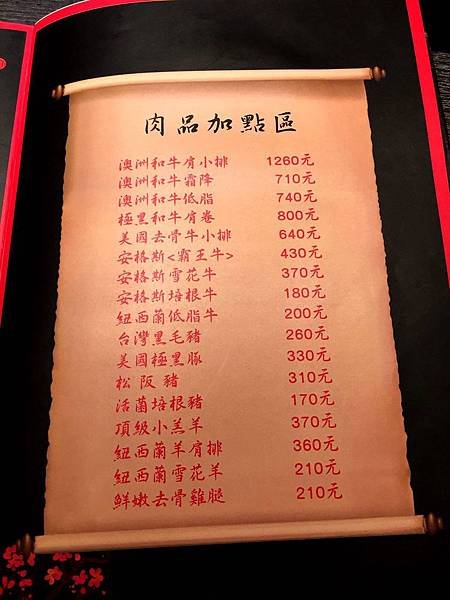 肉品加點區
澳洲和牛肩小排 1260元
澳洲和牛霜降 710元
澳洲和牛低脂 740元
極黑和牛肩卷 800元
美國去骨牛小排 640元
安格斯<霸王牛> 430元
安格斯雪花牛 370元
安格斯培根牛 180元
紐西蘭低脂牛 200元
台灣黑毛豬 260元
美國極黑豚 330元
松阪豬 310元
活菌培根豬 170元
頂級小羔羊 370元
紐西蘭羊肩排 360元
紐西蘭雪花羊 210元
鮮嫩去骨雞腿 210元